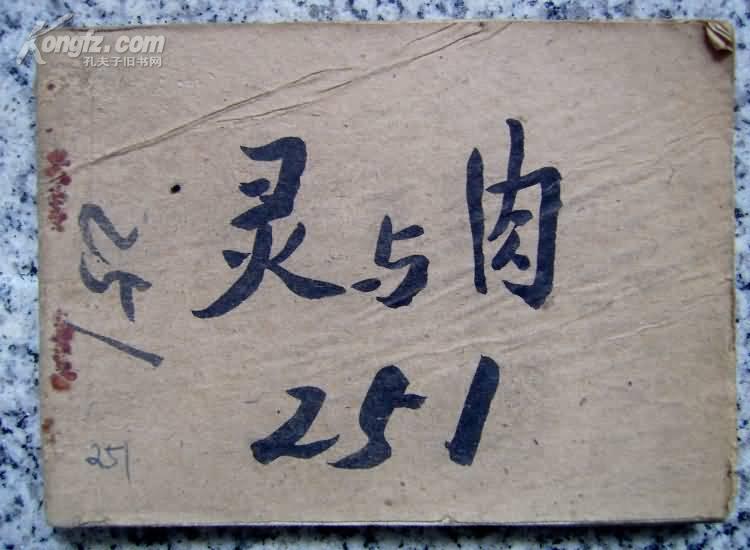 Kongfz.com
孔夫子旧书网
灵与肉
251
152
251